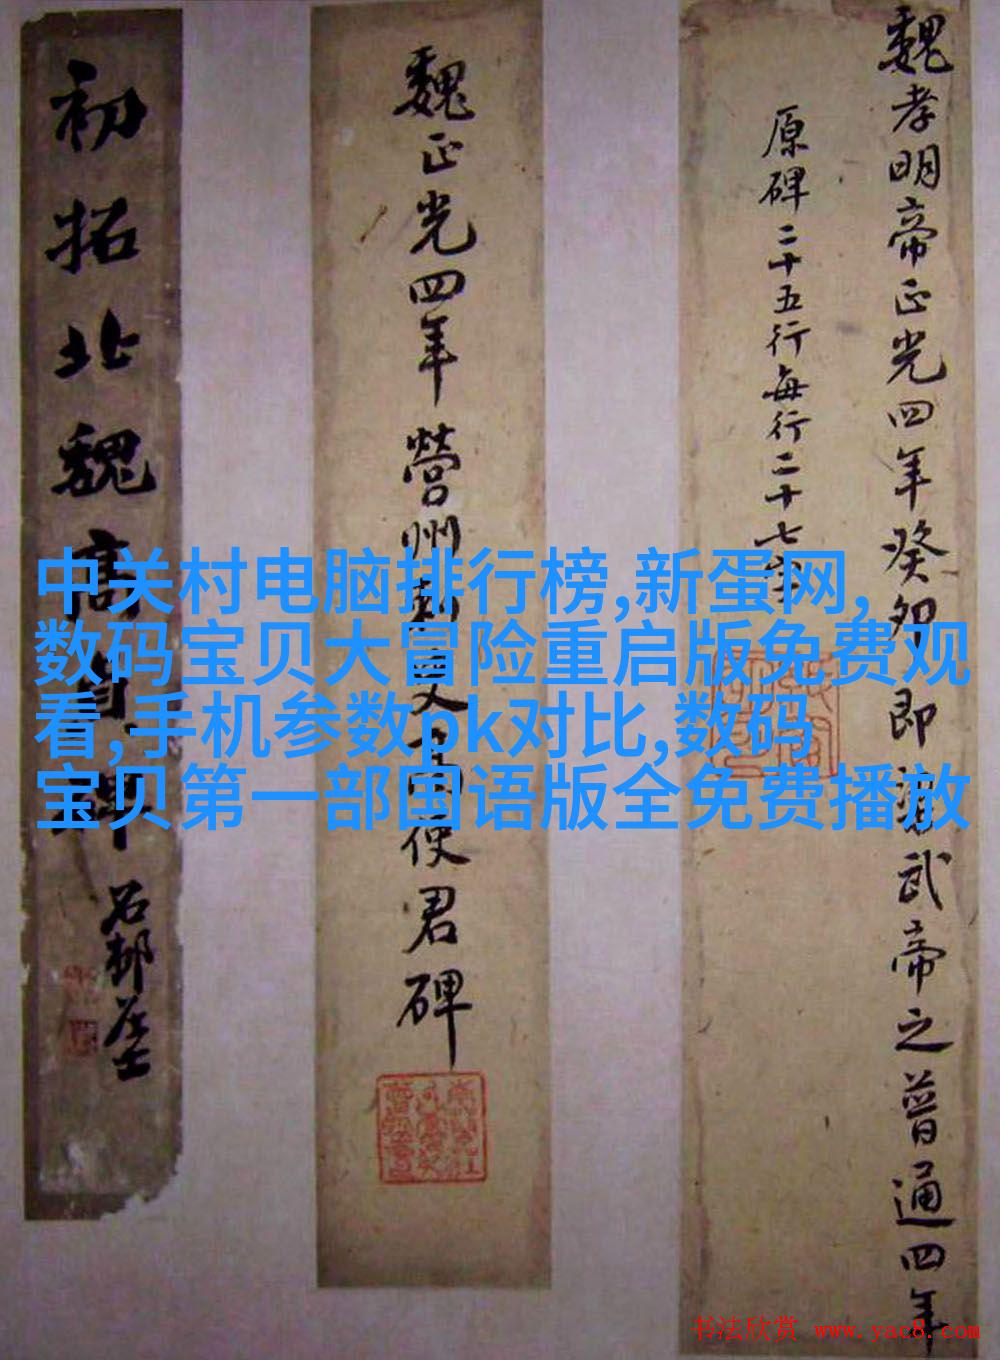 魏孝明帝正光四年癸卯即梁武帝之普通四年
原碑二十五行每行二十七字
魏正光四年營州刺史高使君碑
初拓北魏高貞碑
中关村电脑排行榜,新蛋网,
数码宝贝大冒险重启版免费观
看,手机参数pk对比,数码
宝贝第一部国语版全免费播放
书法欣赏 www.yac8.com